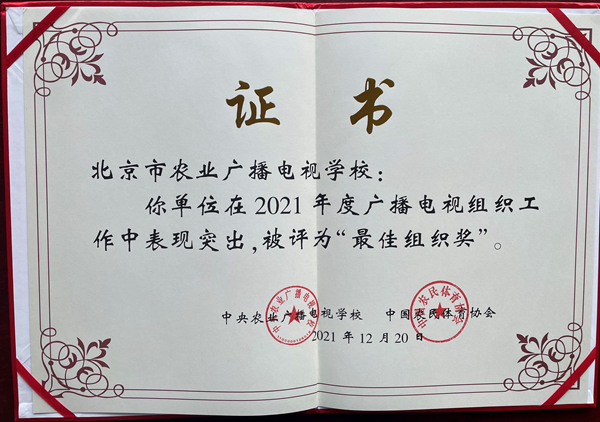 证 书
北京市农业广播电视学校：
你单位在2021年度广播电视组织工
作中表现突出，被评为“最佳组织奖”。
中央农业广播电视学校 中国农民体育协会
2021年12月20日